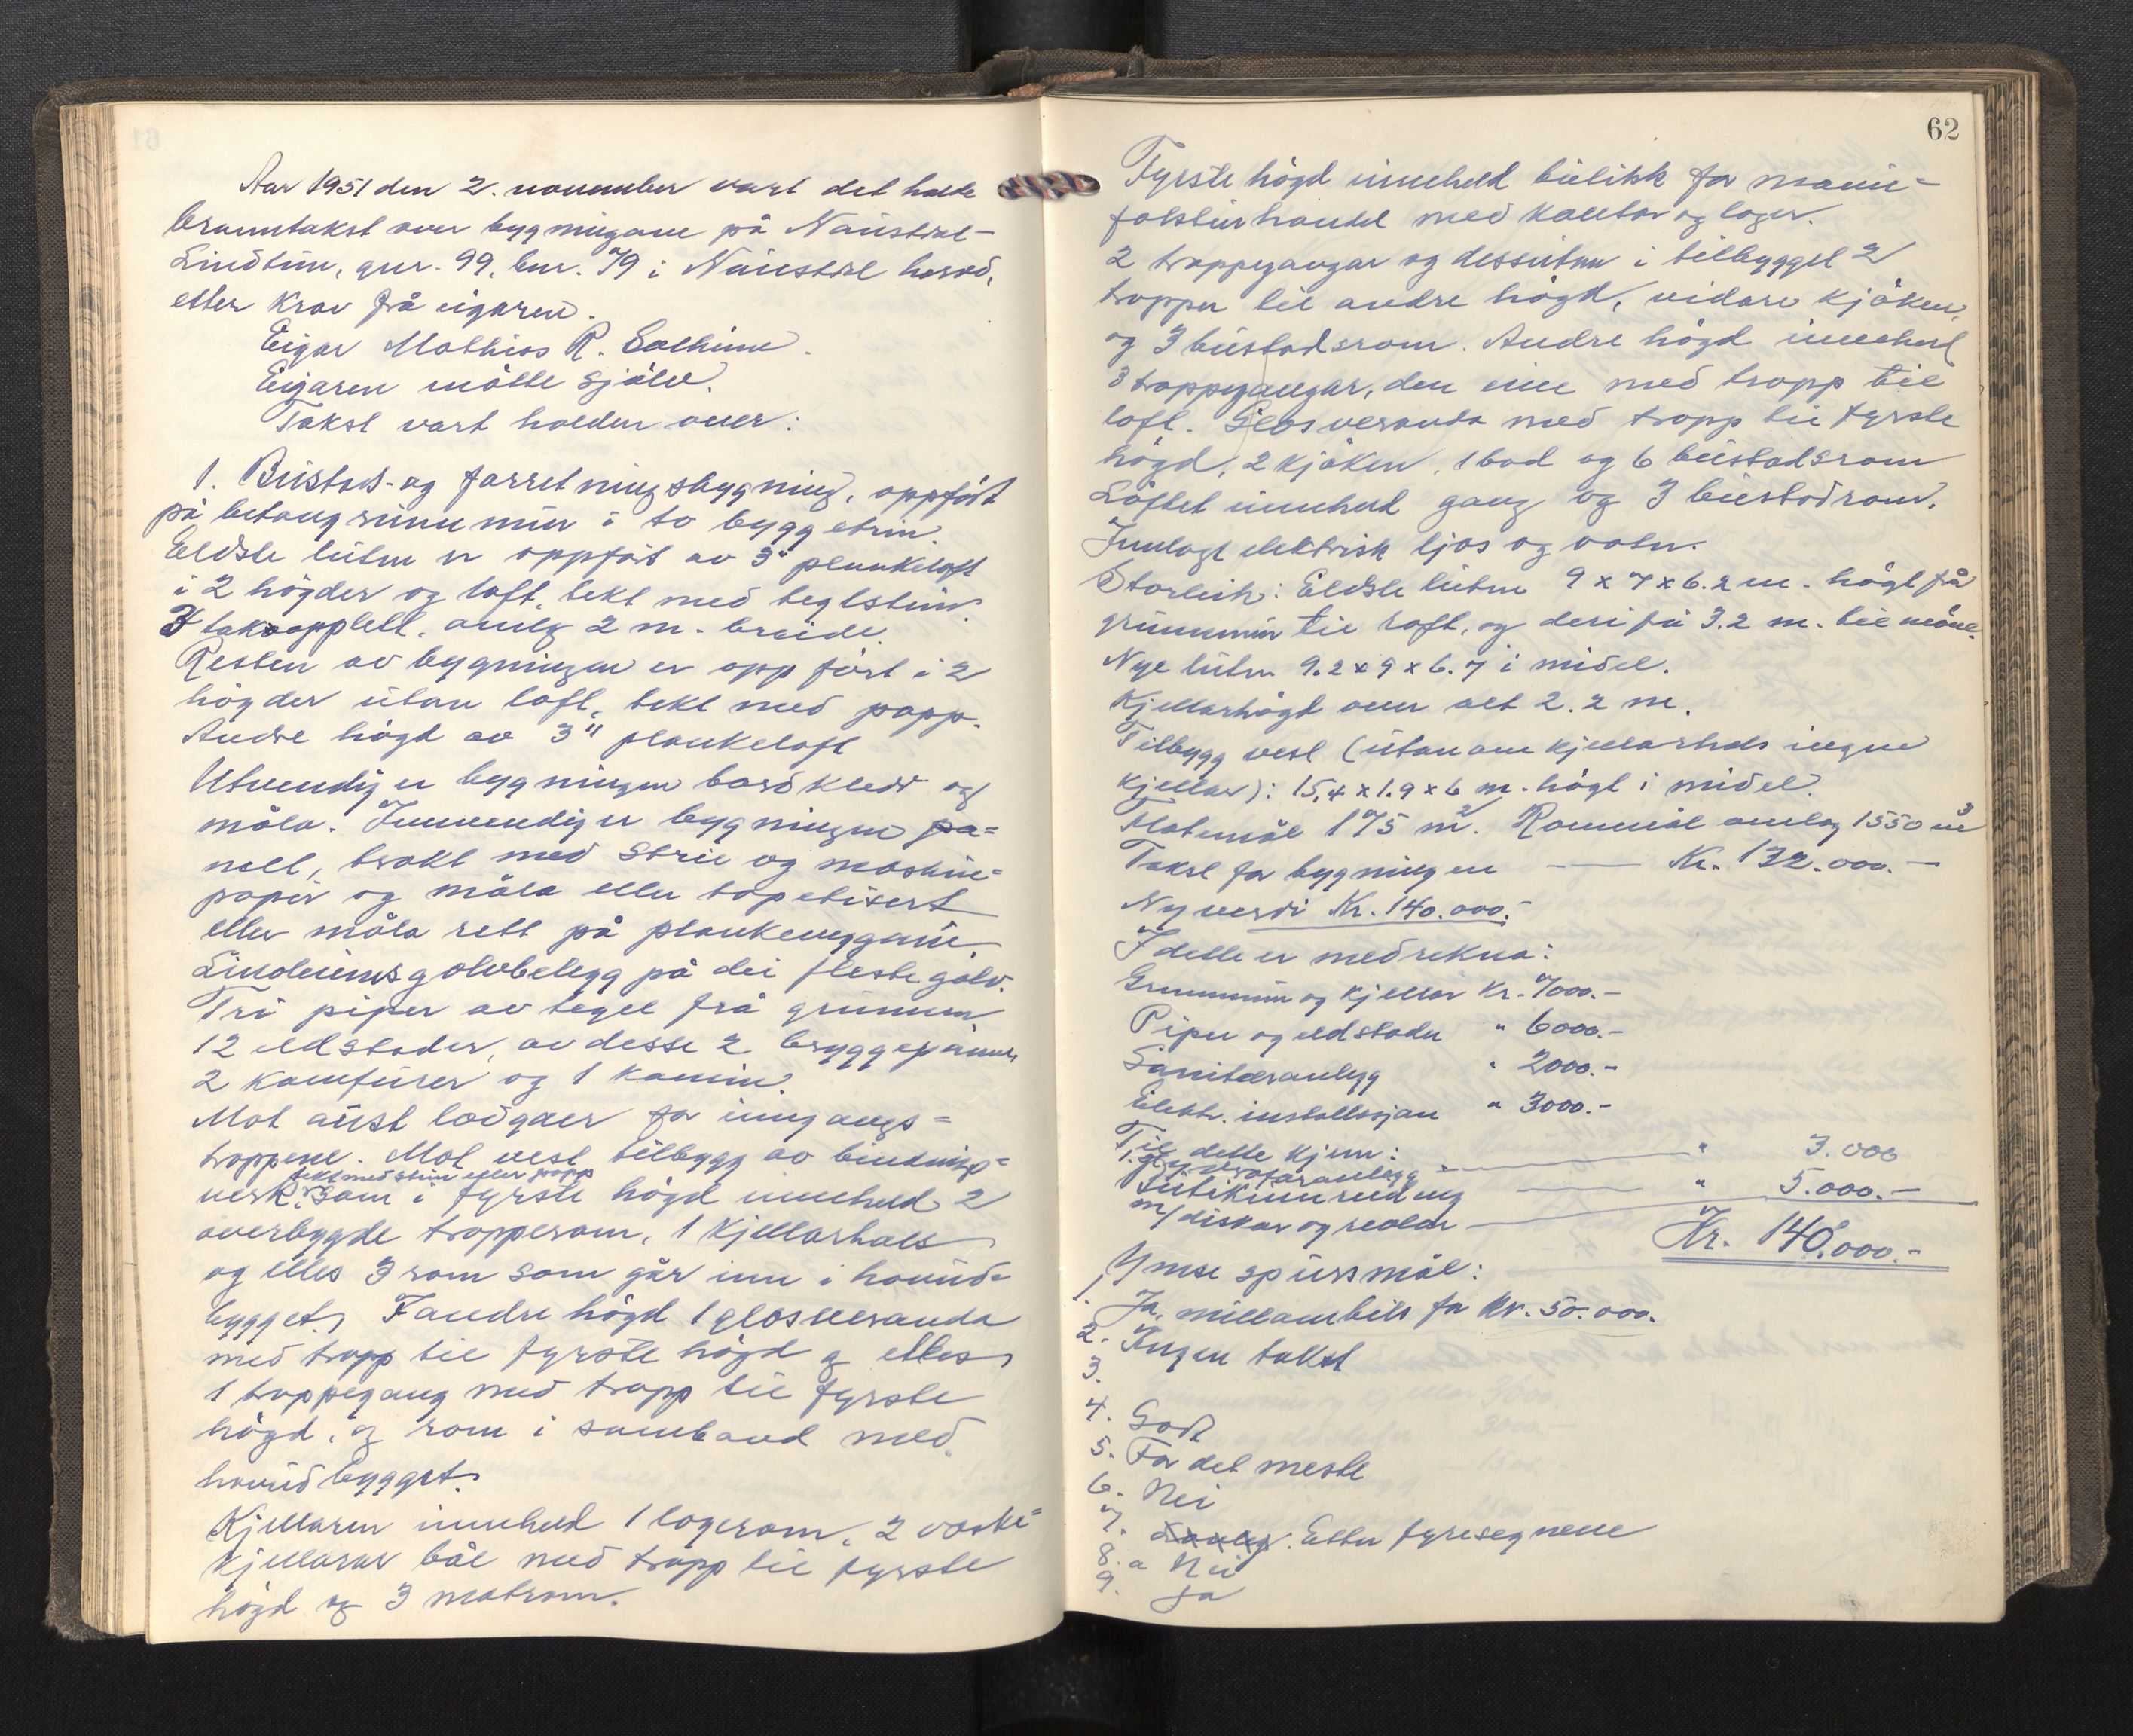 Aar 1951 den 2. november vart det halde
branntakst over bygningane på Naustdal-
Lindtun, gnr. 99, bnr. 79 i Naustdal herad,
etter krav frå eigaren.
Eigar Mathias R. Solheim.
Eigaren møtte sjølv.
Takst vart halden over:
1. Bustad- og forretningsbygning, oppført
på betongrunnmur i to byggetrin.
Eldste luten er oppført av 3" plankeloft
i 2 högder og loft, tekt med teglstein.
3 takopplett, omlag 2 m. breide.
Resten av bygningen er oppført i 2
högder utan loft, tekt med papp.
Andre högd av 3" plankeloft
Utvendig er bygningen bordkledd og
måla. Innvendig er bygningen pa=
nelt, trekt med strie og maskin=
papir og måla eller tapetisert
eller måla rett på plankeveggene
Linoleumsgolvbelegg på dei fleste golv.
Tri piper av tegel frå grunnen
12 eldstader, av desse 2 bryggepanner,
2 komfurer og 1 kamin.
Mot aust lodgaer for inngangs=
troppene. Mot vest tilbygg av bindings=
tekt med stein eller papp
verk. Som i fyrste högd inneheld 2
overbygde tropperom, 1 kjellarhals
og elles 3 rom som går inn i hovud=
bygget. I andre högd 1 glasveranda
med tropp til fyrste högd og elles
1 troppegang med tropp til fyrste
högd, og rom i samband med
hovudbygget.
Kjellaren inneheld 1 lagerom, 2 vaske=
kjellarar båe med tropp til fyrste
högd og 3 matrom.
62
Fyrste högd inneheld butikk for manu=
fakturhandel med kontor og lager.
2 troppegangar og dessutan i tilbygget 2
tropper til andre högd, vidare kjøken
og 3 bustadsrom. Andre högd inneheld
3 troppegangar, den eine med tropp til
loft. Glasveranda med tropp til fyrste
högd, 2 kjøken, 1 bod og 6 bustadsrom
Loftet inneheld gang og 3 bustadrom.
Innlagt elektrisk ljos og vatn.
Storleik: Eldste luten 9 x 7 x 6.2 m. högt frå
grunnmur til raft, og derifrå 3.2 m. til møne.
Nye luten 9.2 x 9 x 6.7 i midel.
Kjellarhögd over alt 2.2 m.
Tilbygg vest (utanom kjellarhals ingen
kjellar): 15,4 x 1.9 x 6 m. högt i midel.
Flatemål 175 m2. Rommål omlag 1550 m3
Takst for bygningen — Kr. 132.000.—
Ny verdi Kr. 140.000.-
I dette er medrekna:
Grunnmur og kjellar Kr. 7000.-
Piper og eldstader " 6000.-
Sanitæranlegg " 2000.-
Elektr. installasjon " 3000.-
Til dette kjem:
anlegg — " 3.000
Butikinnreiing — " 5.000.—
m/diskar og reolar — Kr. 140.000.-
Ymse spursmål:
1. Ja, millombils for kr. 50.000.
2. Ingen takst
3.
4. Godt
5. For det meste
6. Nei
7. Etter fyresegnene
8. a Nei
9. Ja